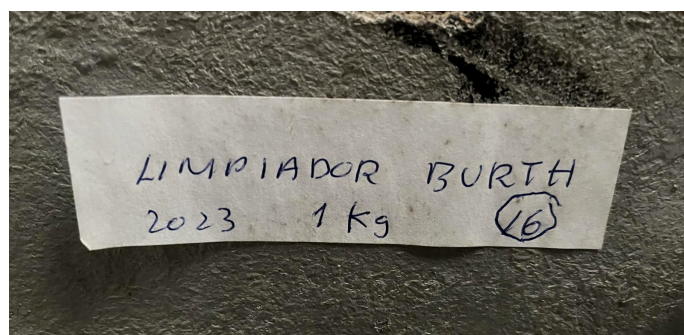 LIMPIADOR BURTH
2023 1 Kg 16